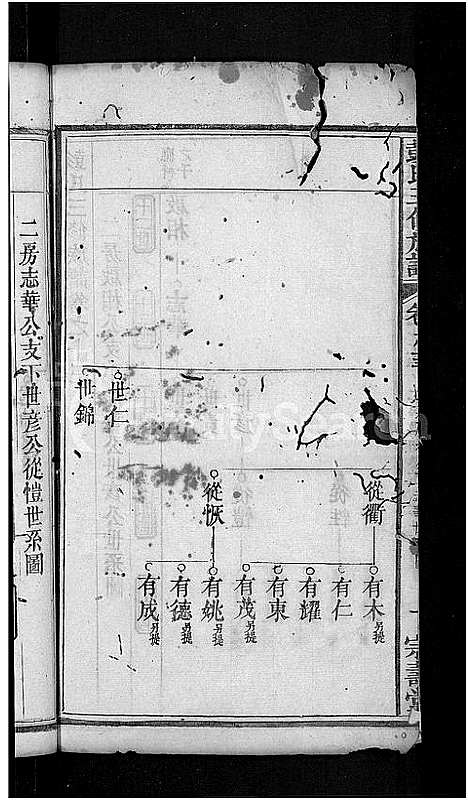 彭氏三修族譜
崇壽堂
從衢
有木 另提
有仁
有耀
有東
有茂 另提
從恢
有姚 另提
有德 另提
有成 另提
世仁
世錦
二房志華公支下世彥公從愷世系圖
FamilySearch